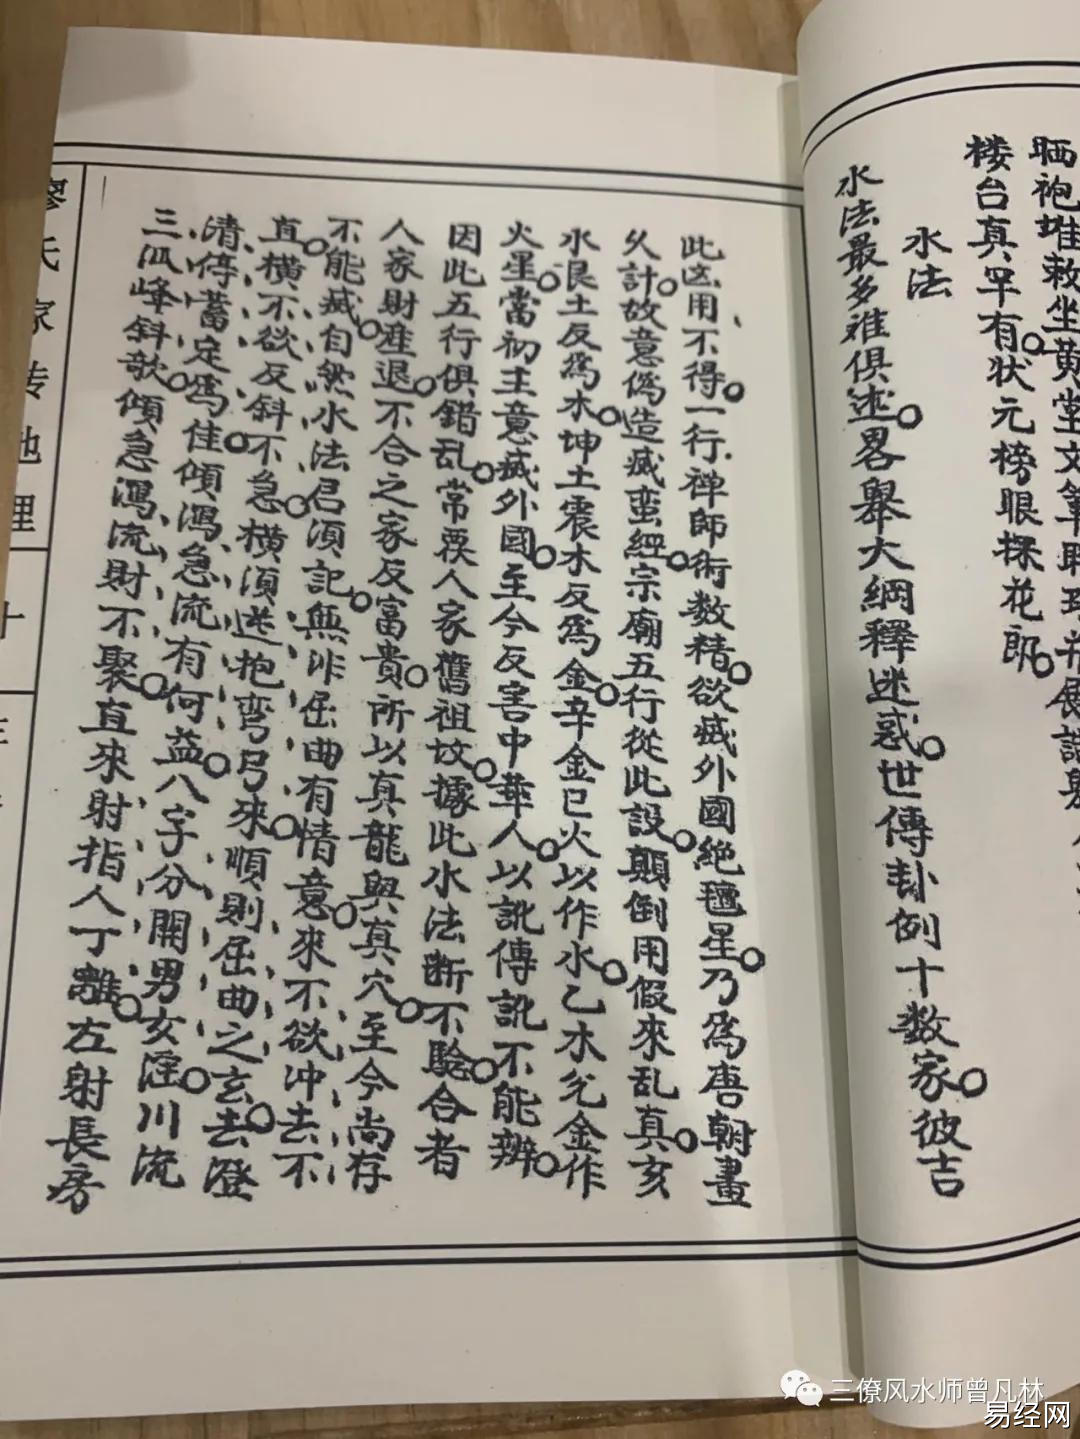 晒袍堆敕坐黄堂文筆
楼台真罕有状元榜眼探花郎
水法
水法最多难俱述畧舉大綱釋迷惑世傳卦例十数家彼吉
此凶用不得一行禅師術数精欲滅外國絶
星乃爲唐朝畫
久計故意僞造滅蛮經宗廟五行從此設顛倒用假來乱真亥
水艮土反爲木坤土震木反爲金辛金巳火以作水乙木兑金作
火星當初主意滅外國至今反害中華人以訛傳訛不能辨
因此五行俱錯乱常葬人家舊祖坟據此水法断不騐合者
人家財產退不合之家反富貴所以真龍與真穴至今尚存
不能滅自然水法君須記無非屈曲有情意來不欲冲去不
直横不欲反斜不急横須遶抱弯弓來順則屈曲之玄去澄
清停蓄定爲佳傾瀉急流有何益八字分開男女淫川流
三派峰斜歌傾急瀉流財不聚直來射指人丁離左射長房
廖氏家传地理
十